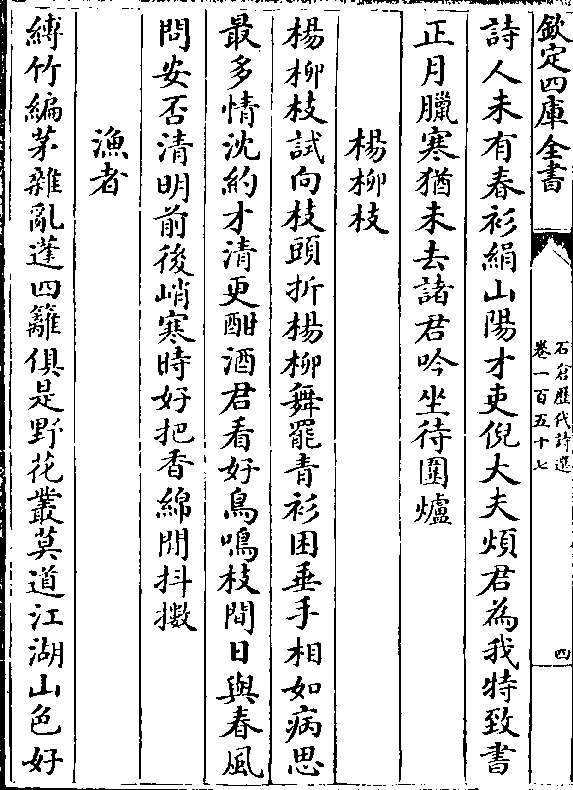 欽定四庫全書
石倉歷代詩選
卷一百五十七
四
詩人未有春衫絹山陽才吏倪大夫煩君為我特致書
正月臘寒猶未去諸君吟坐待圍爐
楊柳枝
楊柳枝試向枝頭折楊柳舞罷青衫困垂手相如病思
最多情沈約才清更酣酒君看好鳥鳴枝間日與春風
問安否清明前後峭寒時好把香綿閒抖擻
漁者
縛竹編茅雜亂蓬四籬俱是野花叢莫道江湖山色好